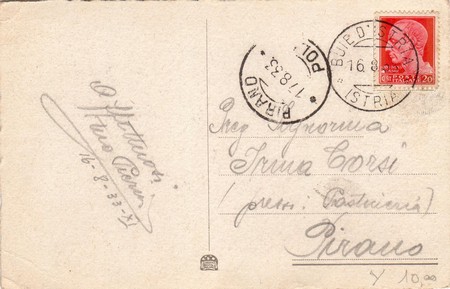 16-8-33-XI
PIRANO
17.8.33
POL
BUIE D'ISTRIA
16.8
ISTRIA
20
Signorina
Irma Corsi
(presso Pasticceria)
Pirano
10,00